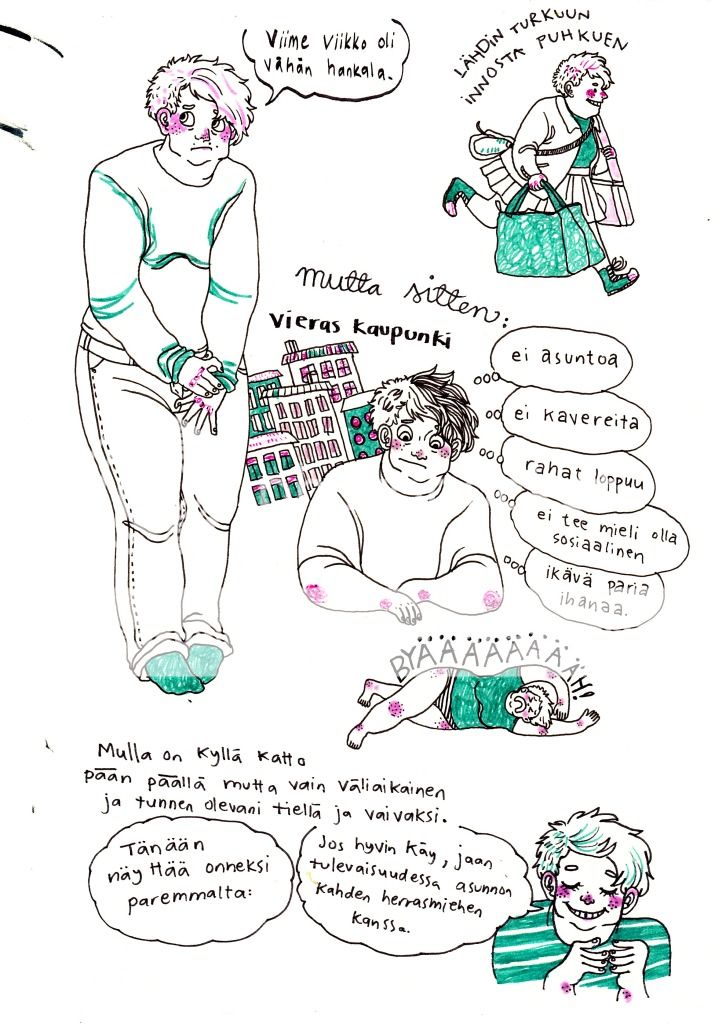 Viime viikko oli
vähän hankala.
LÄHDIN TURKUUN
INNOSTA PUHKUEN
mutta sitten:
vieras kaupunki
ei asuntoa
ei kavereita
rahat loppuu
ei tee mieli olla
sosiaalinen
ikävä paria
ihanaa.
BYÄÄÄÄÄÄÄÄH!
Mulla on kyllä katto
pään päällä mutta vain väliaikainen
ja tunnen olevani tiellä ja vaivaksi.
Tänään
näyttää onneksi
paremmalta:
Jos hyvin käy, jaan
tulevaisuudessa asunnon
kahden herrasmiehen
kanssa.